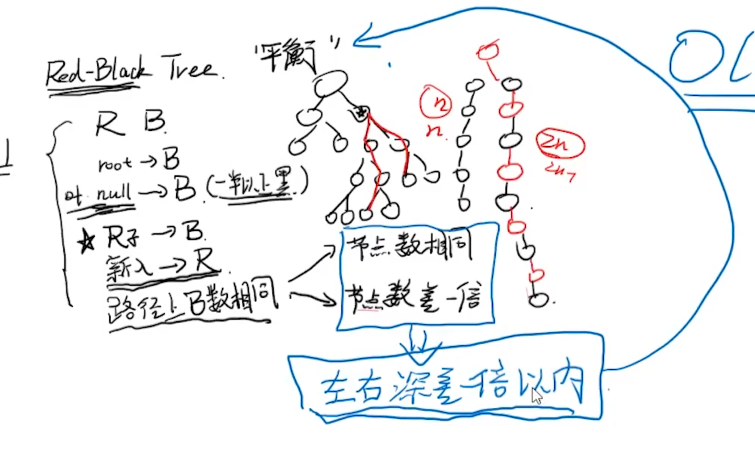 Red-Black Tree.
"平衡"
R B.
root → B
null → B. (一半以上黑)
★ R子 → B.
新入 → R.
路径上B数相同
节点数相同
节点数差一倍
左右深差一倍以内
n
n
2n